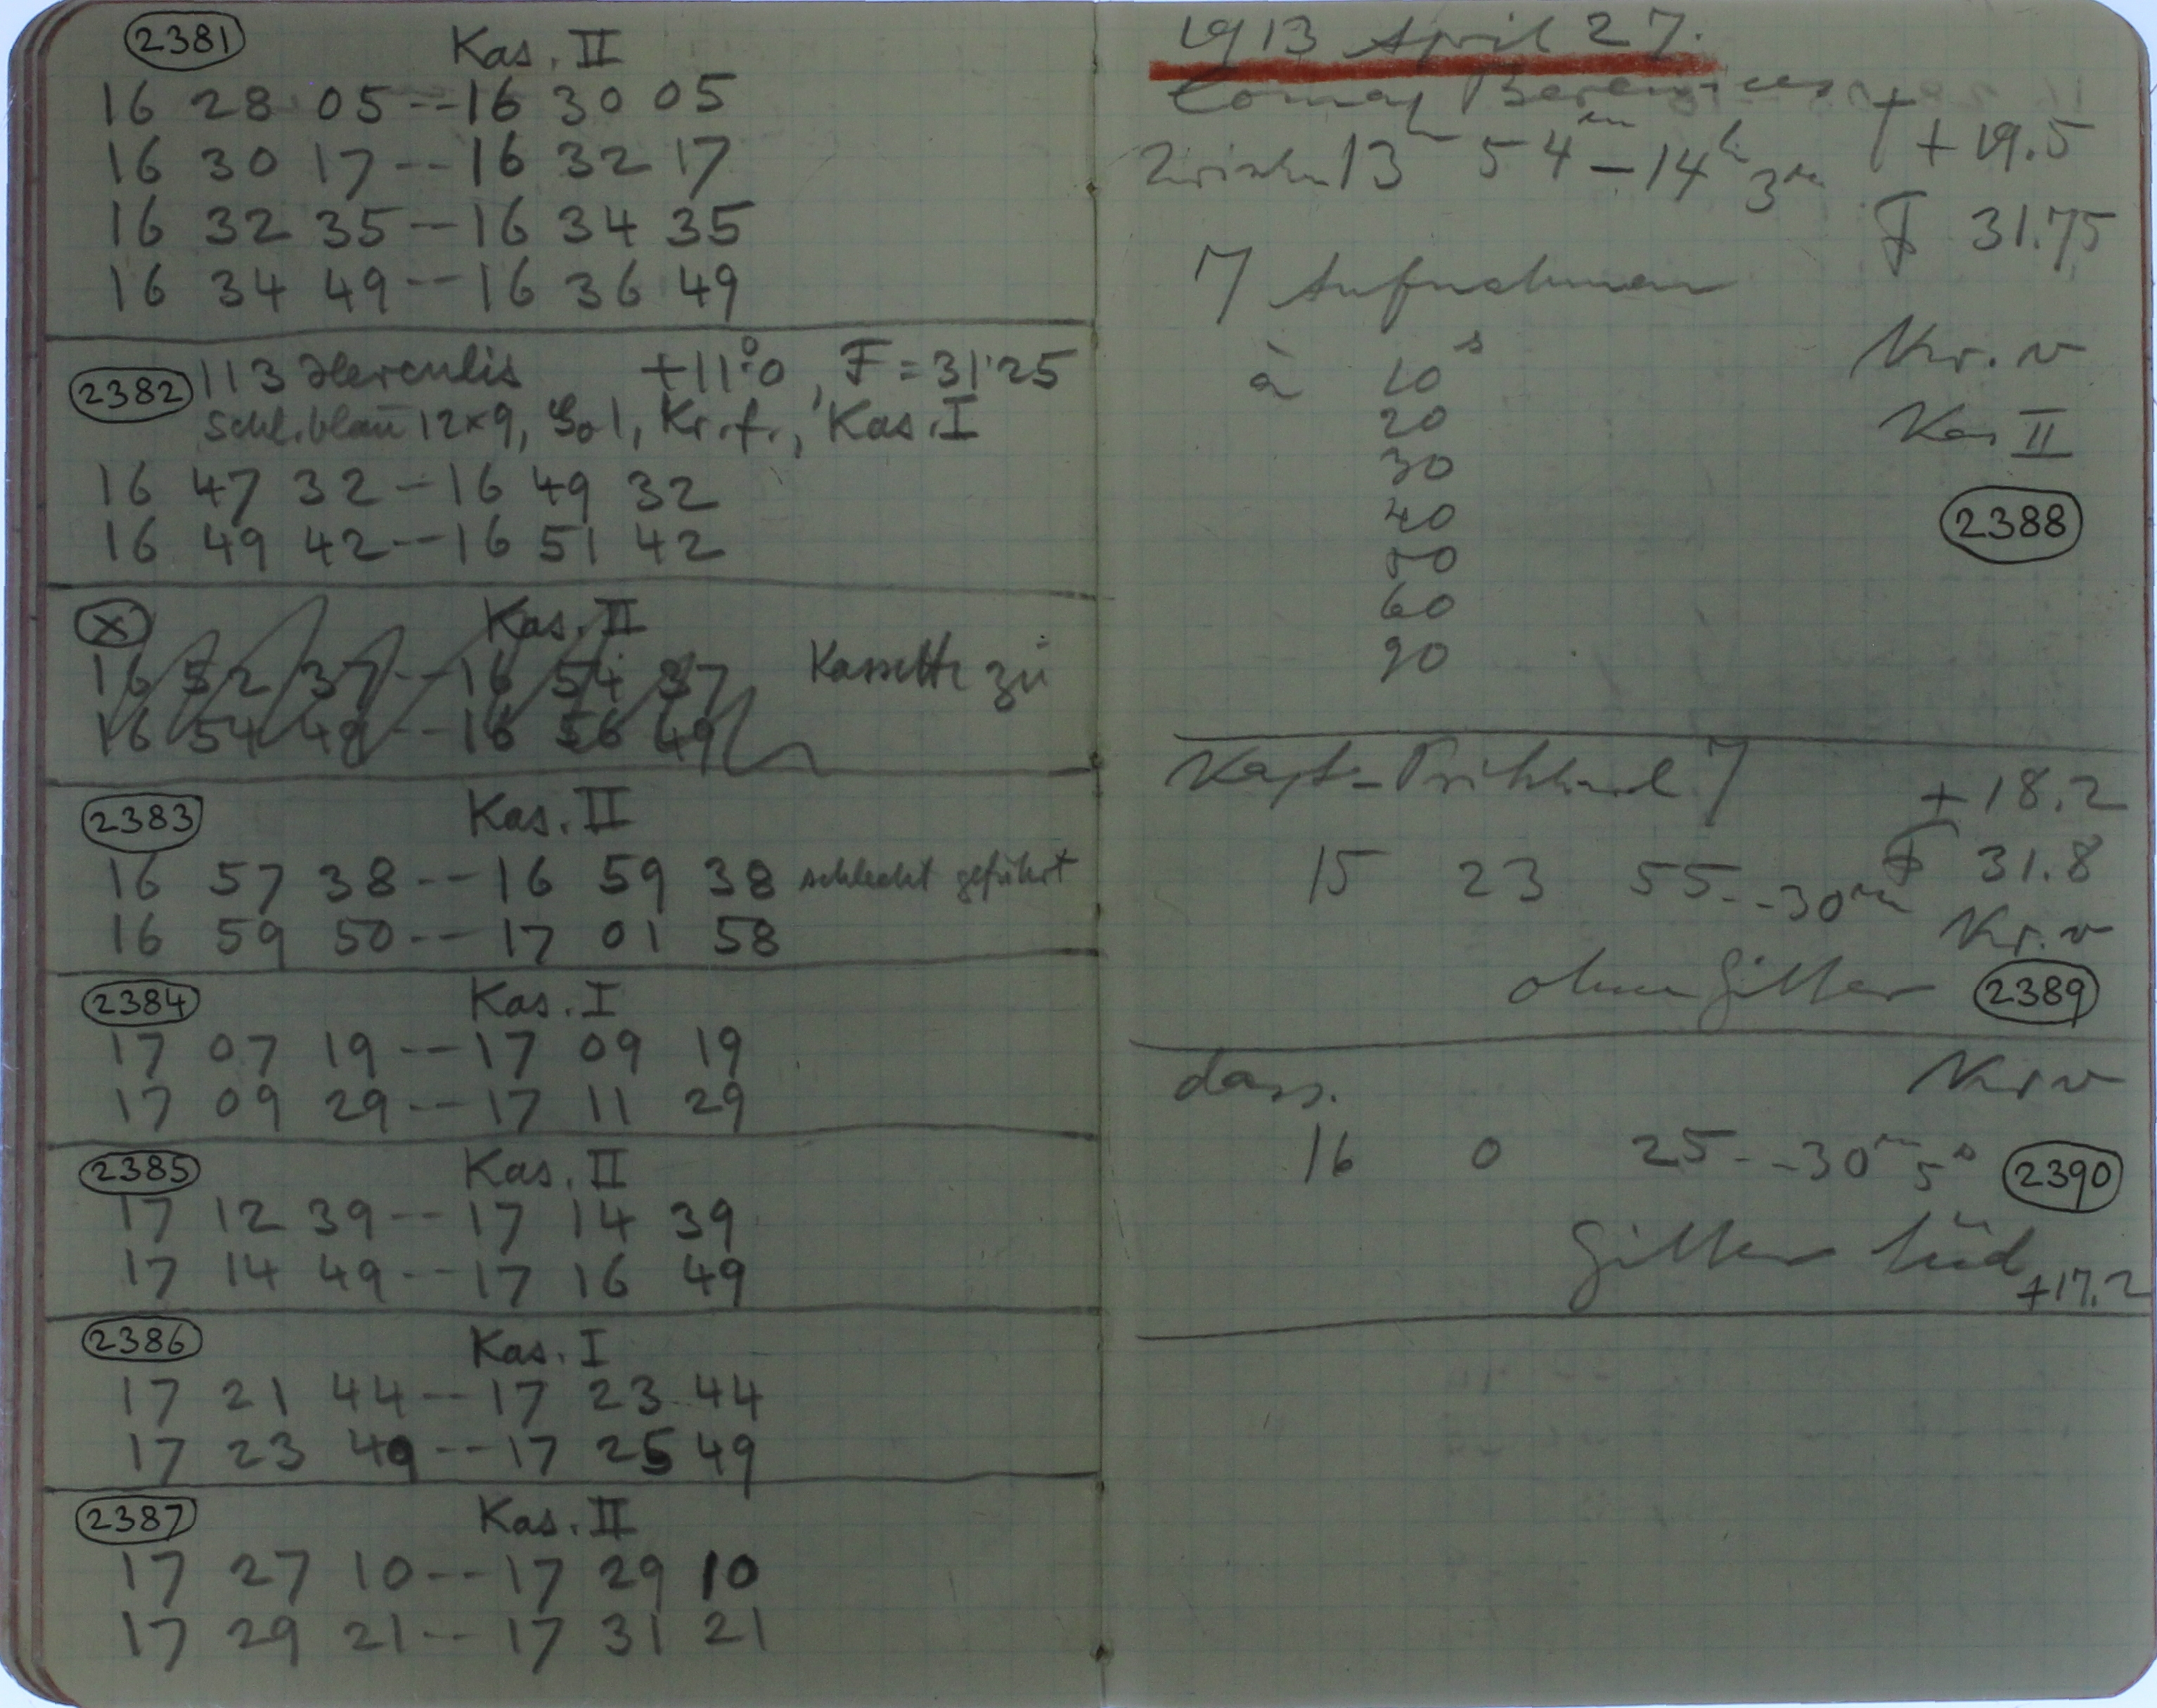 2381 Kas. II
16 28 05 -- 16 30 05
16 30 17 -- 16 32 17
16 32 35 -- 16 34 35
16 34 49 -- 16 36 49
2382 113 Herculis +11°.0, F = 31.25
Schl. blau 12×9, Go 1, Kr. f., Kas. I
16 47 32 - 16 49 32
16 49 42 -- 16 51 42
X Kas. II
16 52 37 -- 16 54 37 Kassette zu
16 54 49 -- 16 56 49
2383 Kas. II
16 57 38 -- 16 59 38 schlecht geführt
16 59 50 -- 17 01 58
2384 Kas. I
17 07 19 -- 17 09 19
17 09 29 -- 17 11 29
2385 Kas. II
17 12 39 -- 17 14 39
17 14 49 -- 17 16 49
2386 Kas. I
17 21 44 -- 17 23 44
17 23 49 -- 17 25 49
2387 Kas. II
17 27 10 -- 17 29 10
17 29 21 -- 17 31 21
1913 April 27.
Comae Berenices
+19.5
Zwischen 13h 54m - 14h 3m
F 31.75
7 Aufnahmen
à 10s Kr. v
20 Kas II
30
40 2388
50
60
90
Kapt- 7 +18.2
15 23 55 -- 30m F 31.8
Kr. v
ohne Gitter 2389
dass. Kr v
16 0 25 -- 30m 5s 2390
Gitter
+17.2